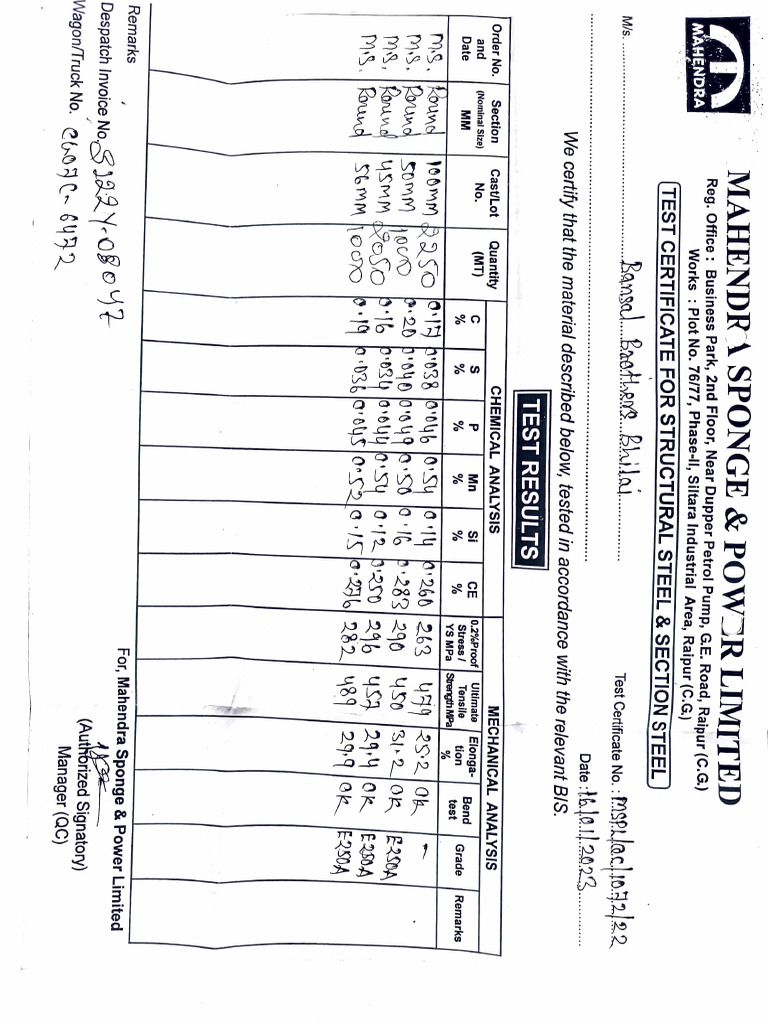 MAHENDRA
MAHENDRA SPONGE & POWER LIMITED
Reg. Office : Business Park, 2nd Floor, Near Dupper Petrol Pump, G.E. Road, Raipur (C.G.)
Works : Plot No. 76/77, Phase-II, Siltara Industrial Area, Raipur (C.G)
TEST CERTIFICATE FOR STRUCTURAL STEEL & SECTION STEEL
M/s. Bansal Brothers Bhilai Test Certificate No. : MSPL/QC/1072/22
Date : 16/01/2023
We certify that the material described below, tested in accordance with the relevant BIS.
TEST RESULTS
Order No. and Date Section (Nominal Size) MM Cast/Lot No. Quantity (MT) CHEMICAL ANALYSIS MECHANICAL ANALYSIS
C % S % P % Mn % Si % CE % 0.2%Proof Stress / YS MPa Ultimate Tensile Strength MPa Elonga-tion % Bend test Grade Remarks
M.S. Round 100MM 2250 0.17 0.038 0.046 0.54 0.14 0.260 263 479 25.2 OK -
M.S. Round 50MM 1000 0.20 0.040 0.049 0.50 0.16 0.283 290 450 31.2 OK E250A
M.S. Round 45MM 2050 0.16 0.034 0.044 0.54 0.12 0.250 296 457 29.4 OK E250A
M.S. Round 56MM 1000 0.19 0.036 0.045 0.52 0.15 0.276 282 489 29.9 OK E250A
Remarks
For, Mahendra Sponge & Power Limited
Despatch Invoice No. S122Y-08047
Wagon/Truck No. CG07C-6472
(Authorized Signatory)
Manager (QC)